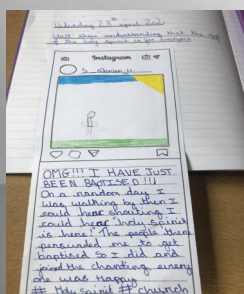 Wednesday 28th April 202
Walt: Show understanding that the gift
of the holy spirit is for everyone
Instagram
OMG!!! I HAVE JUST
BEEN BAPTISED!!!
On a random day I
was walking by then I
could hear shouting I
could hear "holy spirit
is here! The people there
persuaded me to get
baptised so I did and
joined the chanting every
one was Happy
# Holy Spirit # church